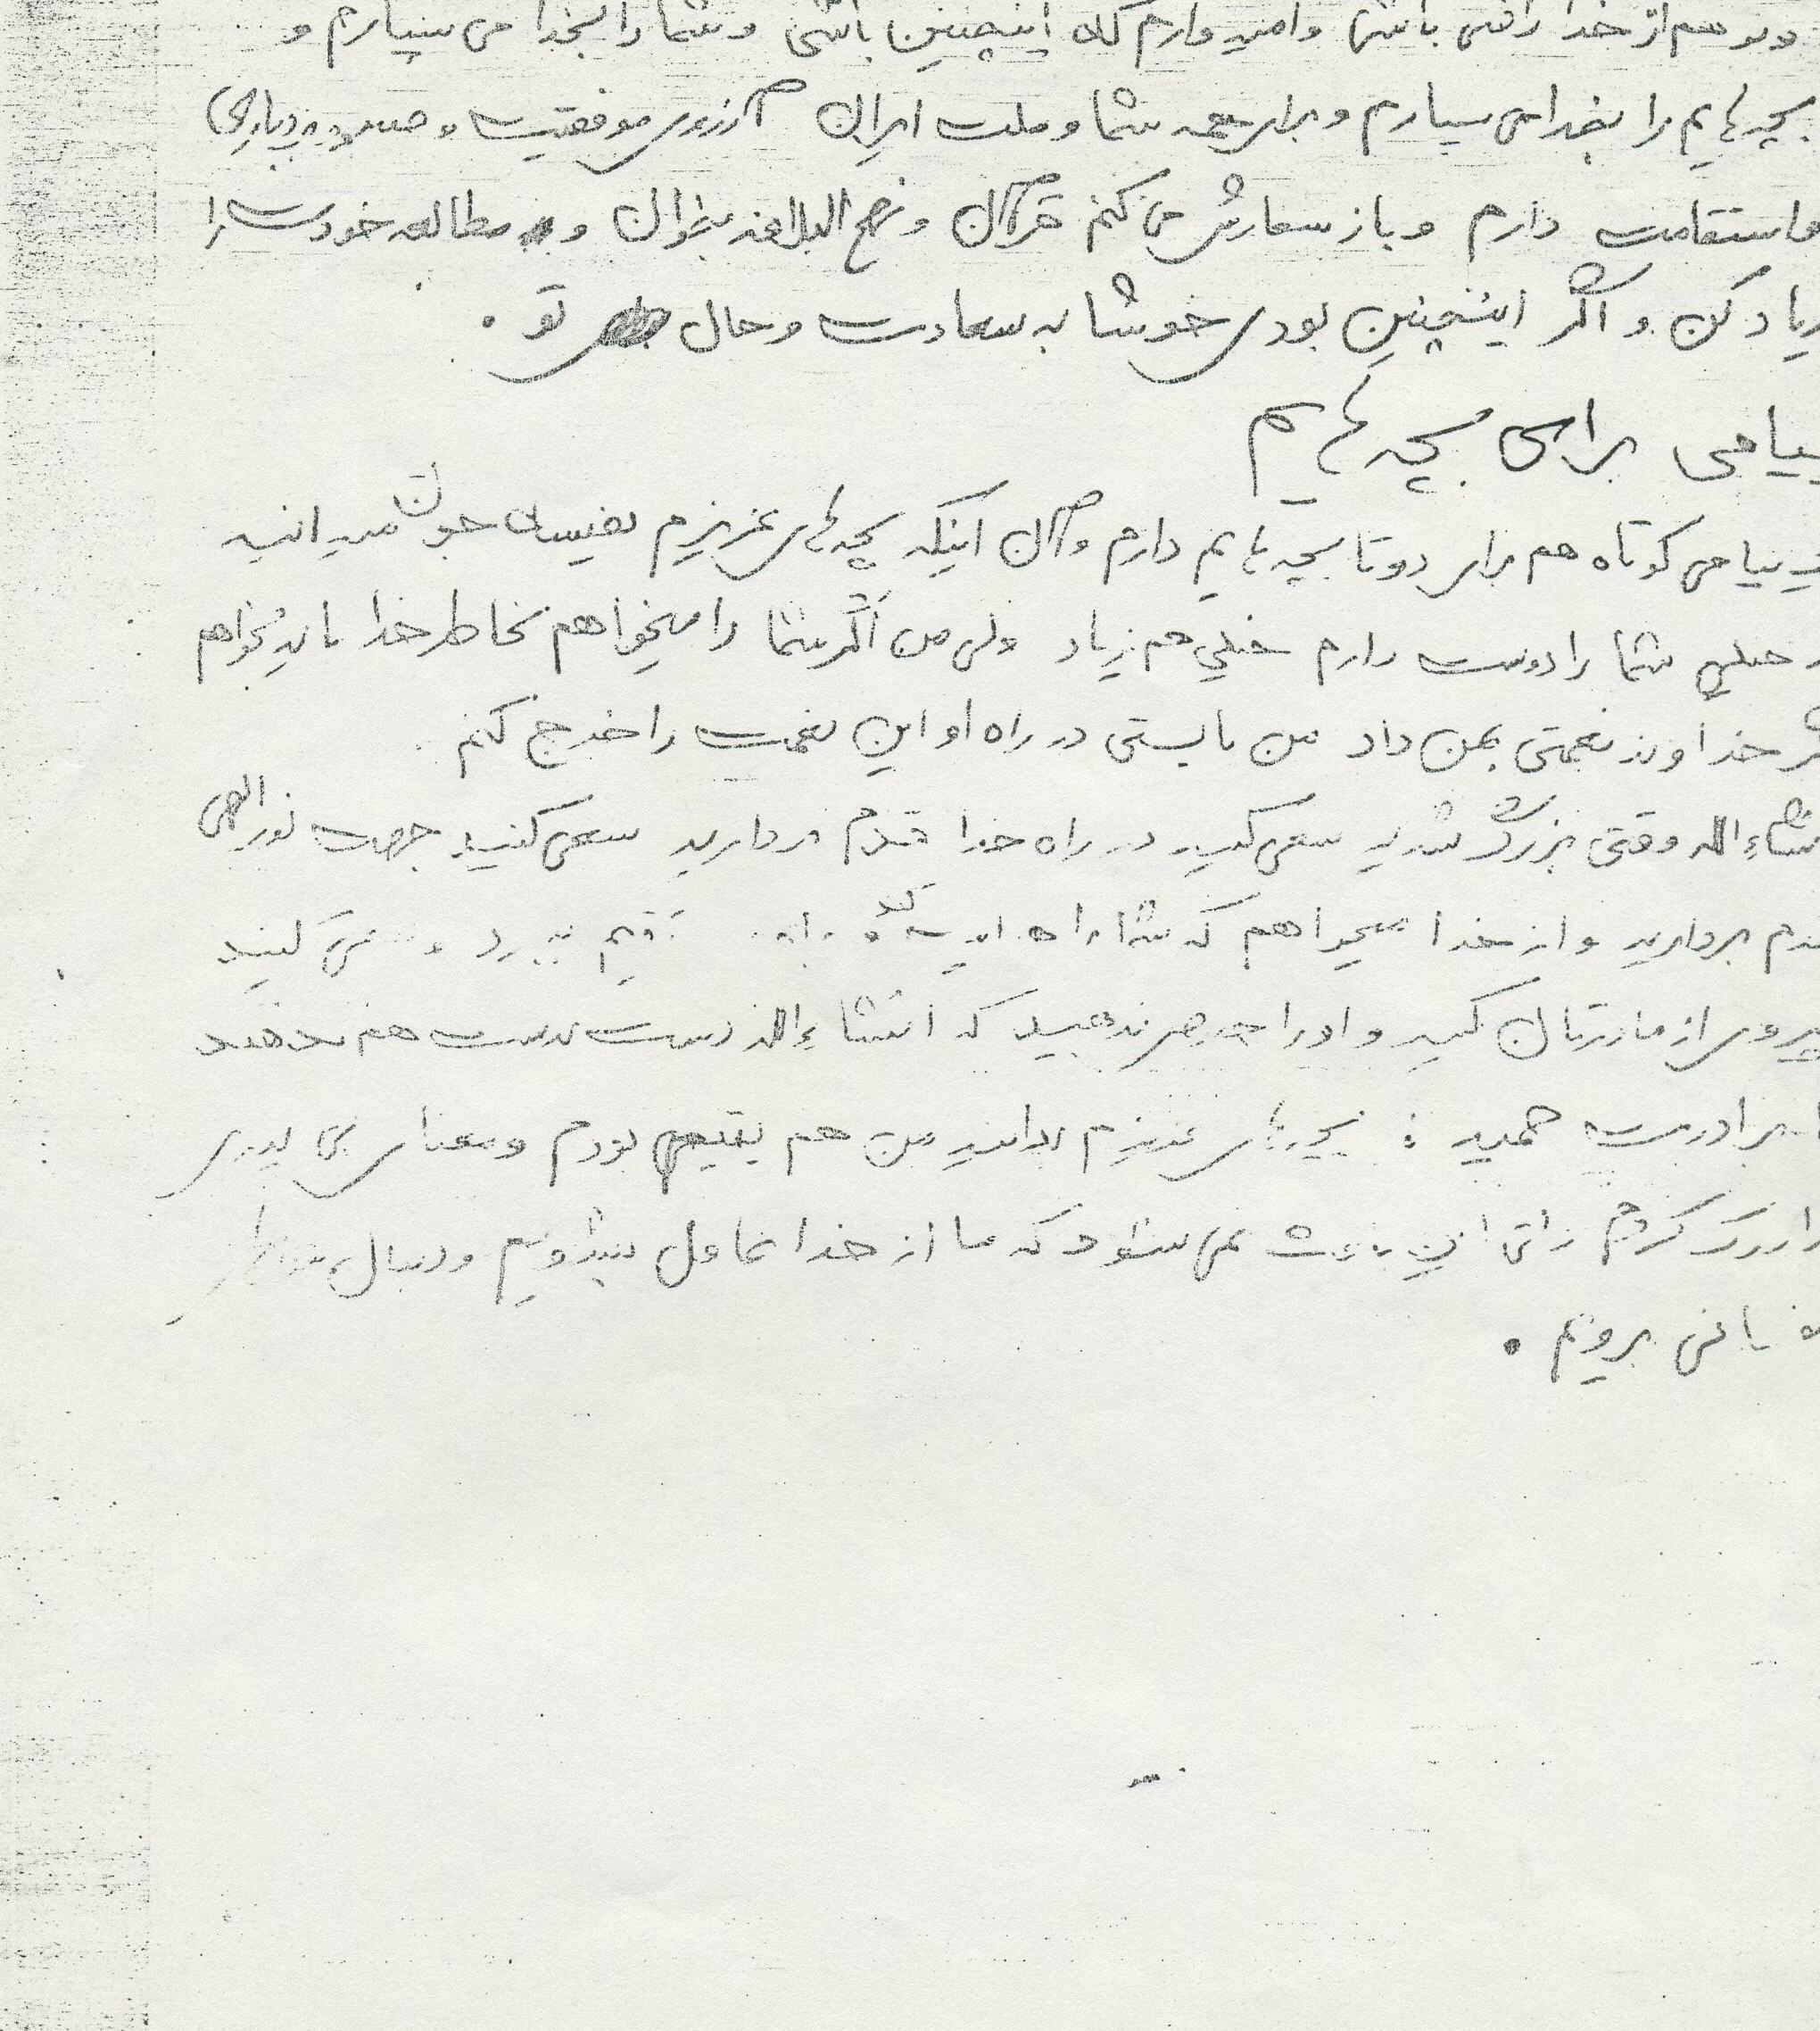 وتو هم از خدا راضی باشی وامیدوارم که اینچنین باشی وشما را بخدا می سپارم و
بچه هایم را بخدا می سپارم و برای همه شما و ملت ایران آرزوی موفقیت و صبر و بردباری
واستقامت دارم و باز سفارش می کنم قرآن و نهج البلاغه بخوان و مطالعه خودت را
زیاد کن و اگر اینچنین بودی خوشا به سعادت و حال تو .
پیامی برای بچه هایم
پیامی کوتاه هم برای دوتا بچه هایم دارم و آن اینکه بچه های عزیزم نفیسه جون میدانید
خیلی شما را دوست دارم خیلی هم زیاد ولی من اگر شما را میخواهم بخاطر خدا باید بخواهم
خداوند نعمتی بمن داد من بایستی در راه او این نعمت را خرج کنم .
انشاءالله وقتی بزرگ شدید سعی کنید در راه خدا قدم بردارید سعی کنید جهت نور الهی
قدم بردارید و از خدا میخواهم که شما را هدایت کند کنید
پیروی از مادرتان کنید و او را حرص ندهید که انشاءالله دست بدست هم بدهید
با برادرت حمید : بچه های عزیزم بدانید من هم یتیم بودم و معنای بی پدری
را درک کردم ولی این باعث نمی شود که ما از خدا غافل بشویم و دنبال
برویم .